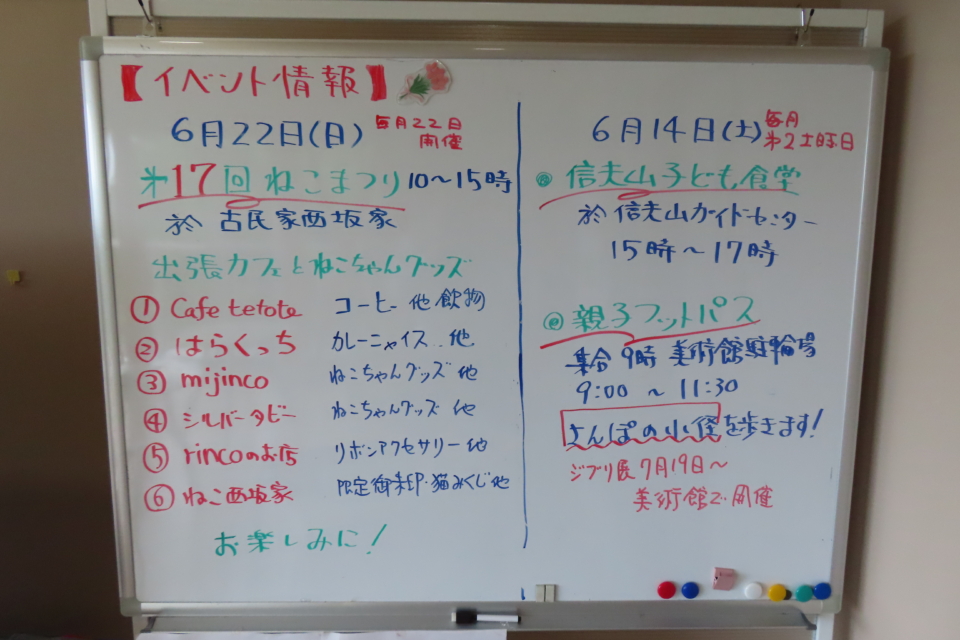 【イベント情報】
6月22日(日)
毎月22日
開催
第17回 ねこまつり 10～15時
於 古民家西坂家
出張カフェとねこちゃんグッズ
① Cafe tetote コーヒー他飲物
② はらくっち カレーニャイス..他
③ mijinco ねこちゃんグッズ他
④ シルバータビー ねこちゃんグッズ他
⑤ rincoのお店 リボンアクセサリー他
⑥ ねこ西坂家 限定御朱印・猫みくじ他
お楽しみに!
6月14日(土)
毎月
第2土曜日
◎ 信夫山子ども食堂
於 信夫山ガイドセンター
15時～17時
◎ 親子フットパス
集合 9時 美術館駐輪場
9:00 ～ 11:30
さんぽの小径を歩きます!
ジブリ展7月19日～
美術館で開催